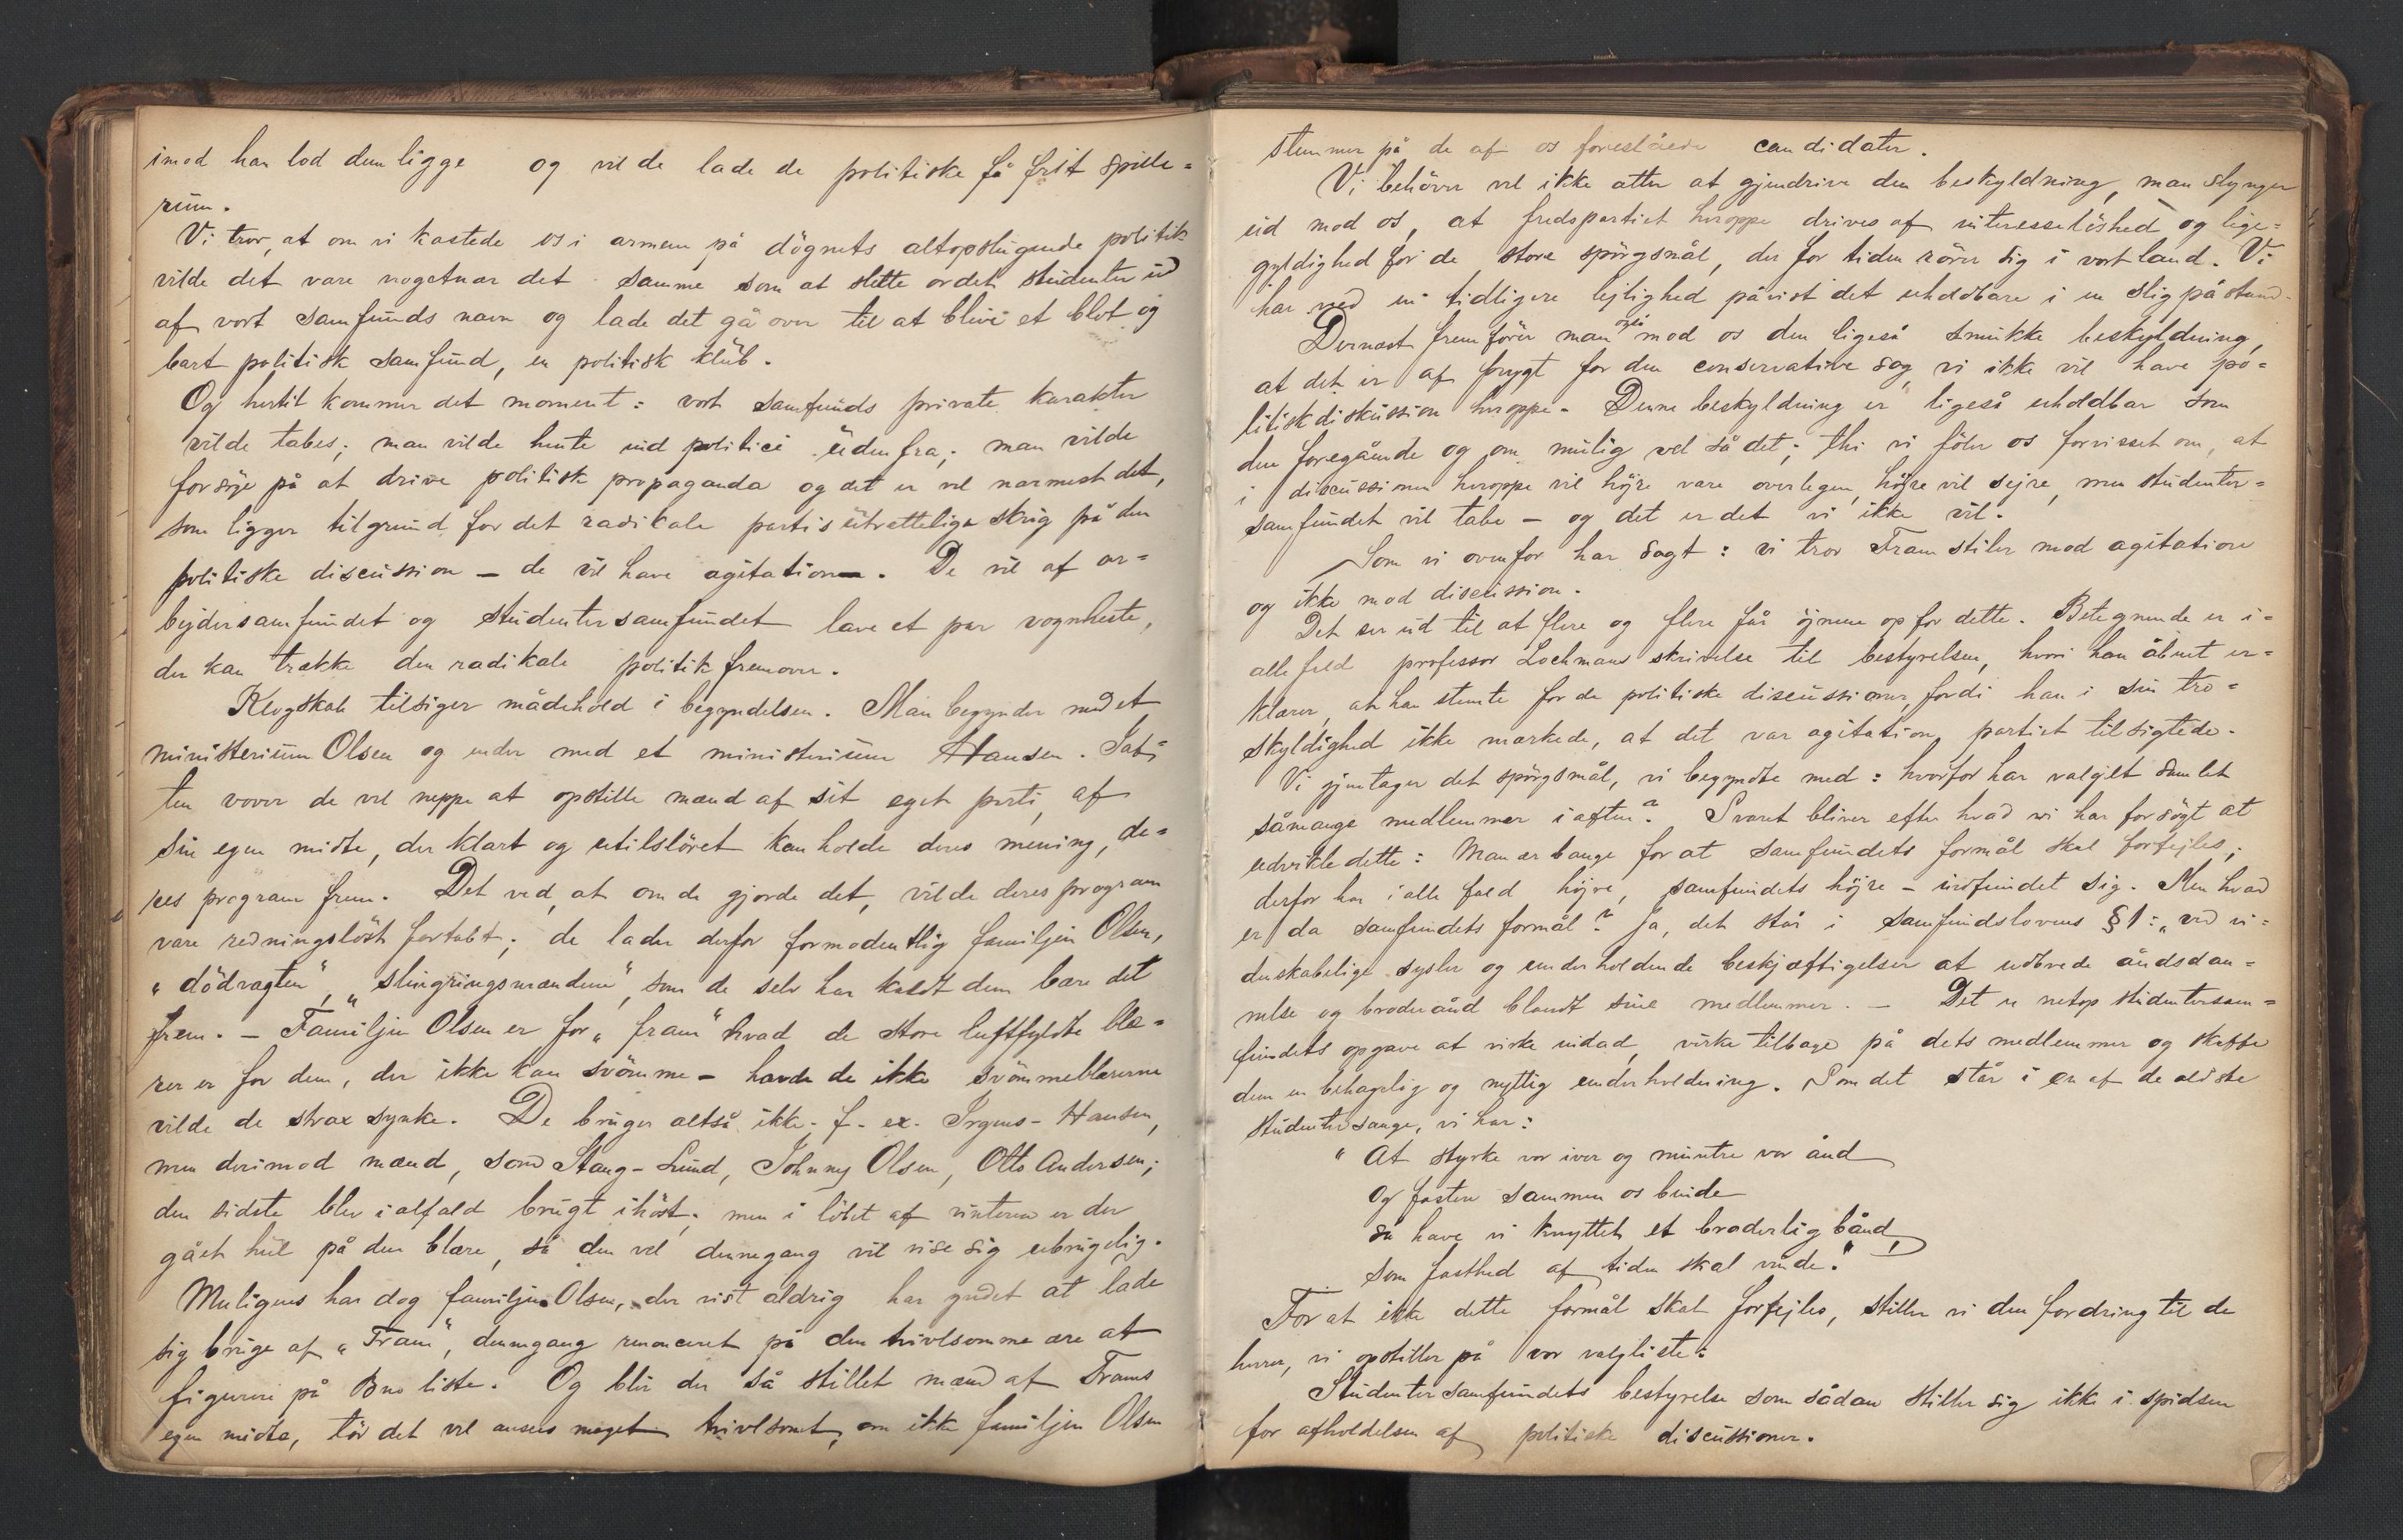 imod han lod dem ligge og vil de lade de politiske få frit spille=
rum.
Vi tror, at om vi kastede os i armene på døgnets altopslugende politik
vilde det være nogetnær det samme som at slette ordet studenter ud
af vort samfunds navn og lade det gå over til at blive et blot og
bart politisk samfund, en politisk klub.
Og hertil kommer det moment: vort samfunds private karakter
vilde tabes; man vilde hente ind politici udenfra; man vilde
forsøge på at drive politisk propaganda og det er vel nærmest det,
som ligger tilgrund for det radikale partis utrættelige skrig på den
politiske discussion – de vil have agitation. De vil af ar=
bejdersamfundet og studentersamfundet lave et par vognheste,
der kan trække den radikale politik fremover.
Klogskab tilsiger mådehold i begyndelsen. Man begynder med et
ministerium Olsen og ender med et ministerium Hansen.
ten vover de vel neppe at opstille mænd af sit eget parti, af
sin egen midte, der klart og utilsløret kan holde deres mening, de=
res program frem. Det ved, at om de gjorde det, vilde deres program
være redningsløst fortabt; de lader derfor formodentlig familjen Olsen,
"dødvægten", "slingringsmændene", som de selv har kaldt dem bære det
frem. – Familjen Olsen er for "fram" hvad de store luftfyldte blæ=
rer er for dem, der ikke kan svømme – havde de ikke svømmeblærerne
vilde de strax synke. De bruger altså ikke f. ex. Irgens-Hansen,
men derimod mænd, som Stang-Lund, Johnny Olsen, Otto Andersen;
den sidste blev ialfald brugt ihøst; men i løbet af vinteren er der
gået hul på den blære, så den vel dennegang vil vise sig ubrugelig.
Muligens har dog familjen Olsen, der vist aldrig har yndet at lade
sig bruge af "Fram", dennegang renonceret på den tvivlsomme ære at
figurere på liste. Og blir der så stillet mænd af Frams
egen midte, tør det vel anses meget tvivlsomt, om ikke familjen Olsen
stemmer på de af os foreslåede candidater.
Vi behøver vel ikke atter at gjendrive den beskyldning, man slynger
ud mod os, at fredspartiet heroppe drives af interesseløshed og lige=
gyldighed for de store spørgsmål, der for tiden rører sig i vort land. Vi
har ved en tidligere lejlighed påvist det uholdbare i en slig påstand.
Dernæst fremfører man også mod os den ligeså smukke beskyldning,
at det er af frygt for den conservative sag vi ikke vil have po=
litisk diskussion heroppe. Denne beskyldning er ligeså uholdbar som
den foregående og om mulig vel så det; thi vi føler os forvisset om, at
i discussionen heroppe vil højre være overlegen, højre vil sejre, men studenter=
samfundet vil tabe – og det er det vi ikke vil.
Som vi ovenfor har sagt: vi tror Fram stiler mod agitation
og ikke mod discussion.
Det ser ud til at flere og flere får øjnene op for dette. Betegnende er i=
allefald professor Lochmans skrivelse til bestyrelsen, hvori han åbent er=
klærer, at han stemte for de politiske discussioner, fordi han i sin tro=
skyldighed ikke mærkede, at det var agitation, partiet tilsigtede.
Vi gjentager det spørgsmål, vi begyndte med: hvorfor har valget samlet
såmange medlemmer iaften? Svaret bliver efter hvad vi har forsøgt at
udvikle dette: Man er bange for at samfundets formål skal forfejles;
derfor har i alle fald højre, samfundets højre – indfundet sig. Men hvad
er da samfundets formål? Ja, det står i samfundslovens §1: "ved vi=
denskabelige sysler og underholdende beskjæftigelser at udbrede åndsdan=
nelse og broderånd blandt sine medlemmer. – Det er netop studentersam=
fundets opgave at virke indad, virke tilbage på dets medlemmer og skaffe
dem en behagelig og nyttig underholdning. Som det står i en af de ældste
studentersange, vi har:
"At styrke vor iver og muntre vor ånd
Og fastere sammen os binde
så have vi knyttet et broderlig bånd,
som fasthed af tiden skal vinde."
For at ikke dette formål skal forfejles, stiller vi den fordring til de
herrer, vi opstiller på vor valgliste:
Studentersamfundets bestyrelse som sådan stiller sig ikke i spidsen
for afholdelsen af politiske discussioner.